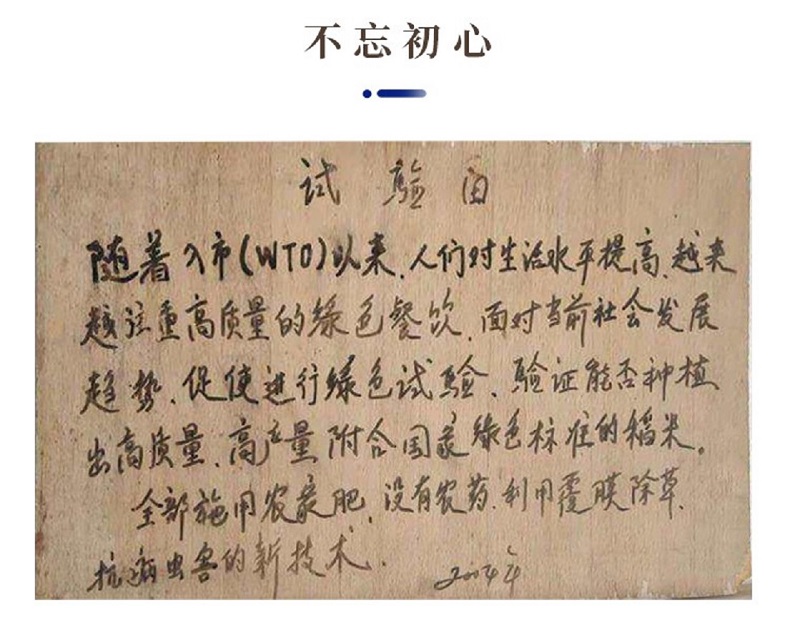 不忘初心
试验田
随着入市(WTO)以来、人们对生活水平提高、越来
越注重高质量的绿色餐饮、面对当前社会发展
趋势、促使进行绿色试验、验证能否种植
出高质量、高产量附合国家绿色标准的稻米。
全部施用农家肥、没有农药、利用覆膜除草、
抗病虫害的新技术.
2004年